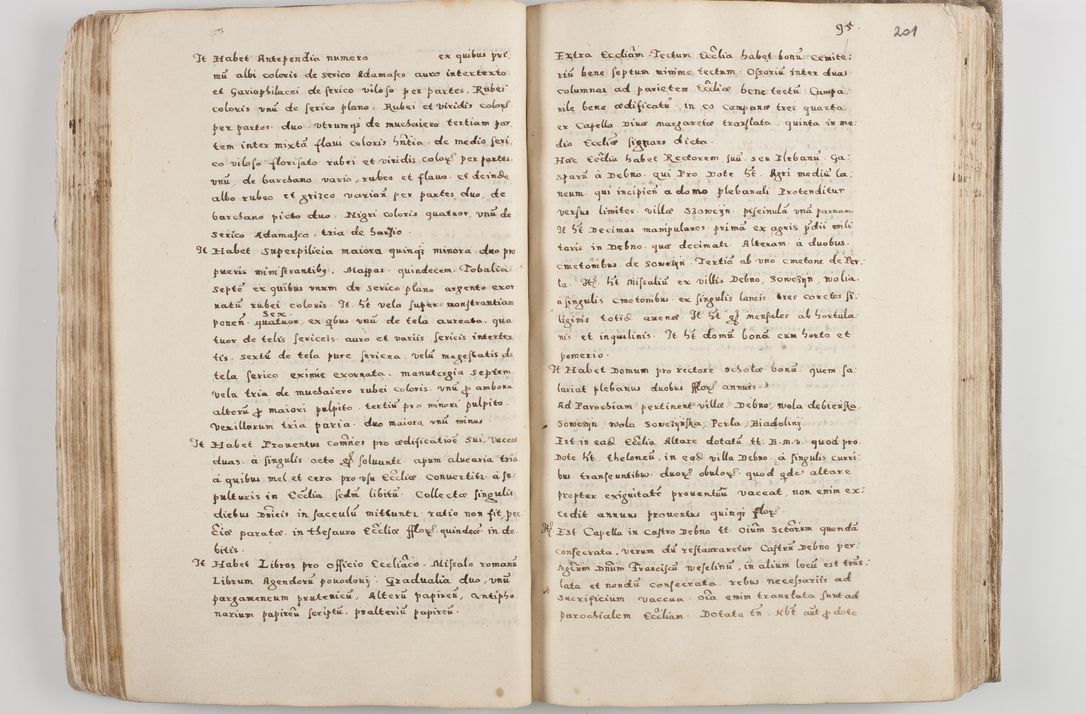 It Habet Antependia numero ex quibus pri
mũ albi coloris de serico Adamasco auro intertexto
et Gariophilacei de serico viloso per partes. Rubei
coloris vnũ de serico plano. Rubei et viridis color
per partes duo, vtrumq de muchaiero tertiam par
tem inter mixtã flaui coloris hñtia. de medio seri
co viloso florisato rubei et viridis color per partes
vnũ, de barchano vario, rubeo et flauo. et deinde
albo rubeo et griseo varian per partes duo, de
barchano picto duo. Nigri coloris quatuor, vnũ de
serico Adamasco. tria de harsio.
It Habet superpilicia maiora quinq minora duo pro
pueris ministrantibq. Mappas quindecem. Tobalia
Septẽ ex quibus vnum de serico plano argento exor
natũ rubei coloris. It ht vela super monstrantiam
ponen Sex quatuor, ex qbus vnũ de tela aureata, qua
tuor de telis sericeis auro et variis sericis intertex
tis. sextũ de tela pure sericea. velũ magestatis de
tela serico eximie exornata. manutergia septem
vela tria de muchaiero rubei coloris. vnũ p ambona
alterũ p maiori pulpito. tertiũ pro minori pulpito.
Vexillorum tria paria. duo maiora vnũ minus.
It Habet Prouentus comnes pro ædificatiõe sui, vaccas
duas. à singulis octo gr soluuntr. apum aluearia tria
à quibus mel et cera pro vsu Ecclæ conuertitr. à se
pulturis in Ecclia scdm libitũ. Collecta singulis
diebus Dñicis in sacculũ mittuntr. ratio non fit, pec
ciæ paratæ in thesauro Eccliæ fflor quindecẽ in do
bitis.
It Habet Libros pro officio Eccliaco. Missale romanũ
Librum Agendorũ pouodouj. Gradualia duo, vnũ
pargameneum prutenicũ, Alterũ papireũ, Antipho
narium papireũ scriptũ. psalteriũ papireũ.
95. 201
Extra Eccliam Tectum Ecclia habet bonũ Cemite
riũ bene septum minime tectum. Ossoriũ inter duas
columnas ad parietem Eccliæ bene tectũ Campa
nile bene ædificatũ in eo Campanæ tres quarta
ex Capella Diuæ Margaretæ traslata. quinta in me
dio Eccliæ signans dicta.
Hæc Ecclia habet Rectorem suũ seu Plebanũ Ga
sparũ à Debno. qui Pro Dote ht. Agri mediũ la
neum qui incipien a domo plebanali Protenditur
versus limites villæ Szowezn. piscinulã vnã paruam.
It ht Decimas manipulares primã ex agris pdii mili
taris in Debno quæ decimatr. Alteram à duobus
Cmetonibus de Sowezyn. Tertiã ab vno cmetone de Per
la. Itẽ ht Missaliũ ex villis Debno, Sowezyn, wolia
a singulis Cmetonibus ex singulis laneis tres coretos si
liginis totidẽ auenæ. It ht gr mensales ab hortula
nis et inquilinis. It ht domũ bonã cum horto et
pomerio.
It Habet Domum pro rectore scholæ bonã. quem sa
lariat plebanus duobus fflor annuis.
Ad Parochiam pertinent villæ Debno, wola debienska
Sowezyn wola Sowezynska, Perla, Biadolinj
Est in eadẽ Ecclia Altare dotatũ tt. B.M.V. quod pro
Dote ht. theloneũ in eadẽ villa Debno à singulis curri
bus transeuntibus duorũ obulorũ. quod qde altare
propter exiguitatẽ prouentuũ vaccat, non enim ex
cedit annuus prouentus quinq flor.
Itẽ Est Capella in Castro Debno tt. Oium Sctorum quondã
consecrata, verum dũ restauraretur Castrũ Debno per
Mgcum Dñum Franciscũ weselinũ, in alium locũ est trãs
lata et nondũ consecrata. rebus necessariis ad
sacrificium vaccua. oia enim translata sunt ad
parochialem Eccliam. Dotata tñ. Hbt aut p dote